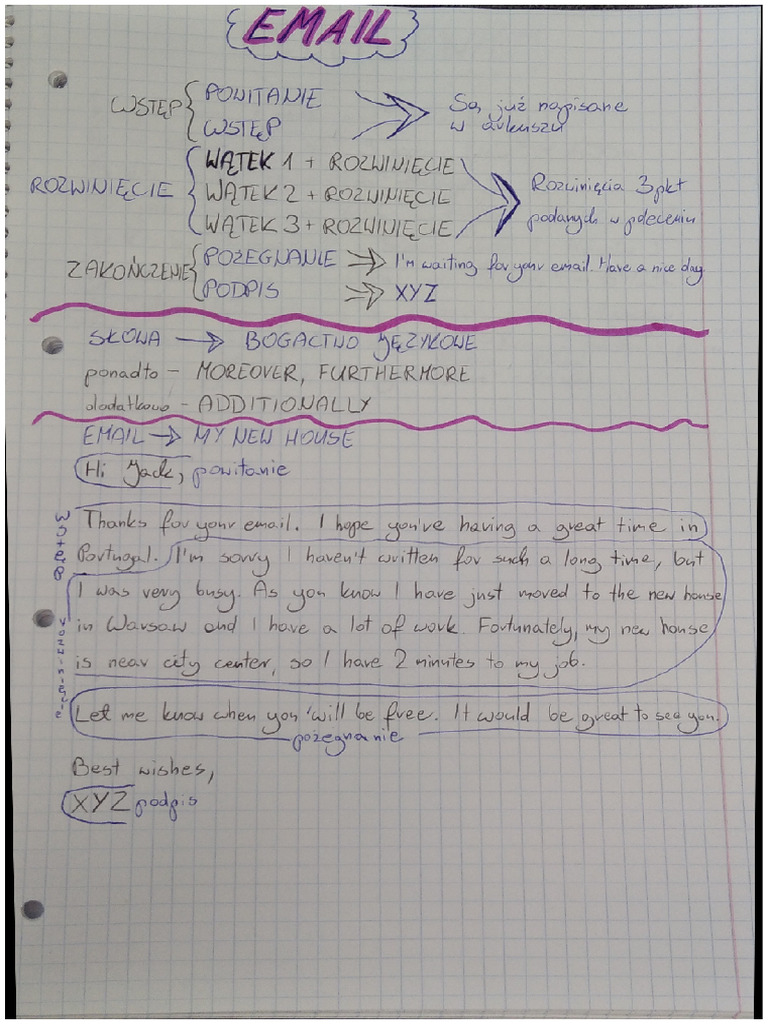 EMAIL
WSTĘP { POWITANIE
WSTĘP
Są już napisane
w arkuszu
ROZWINIĘCIE { WĄTEK 1 + ROZWINIĘCIE
WĄTEK 2 + ROZWINIĘCIE
WĄTEK 3 + ROZWINIĘCIE
Rozwinięcia 3 pkt
podanych w poleceniu
ZAKOŃCZENIE { POŻEGNANIE => I'm waiting for your email. Have a nice day.
PODPIS => XYZ
SŁOWA → BOGACTWO JĘZYKOWE
ponadto - MOREOVER, FURTHERMORE
dodatkowo - ADDITIONALLY
EMAIL → MY NEW HOUSE
Hi Jack, powitanie
wstęp
Thanks for your email. I hope you've having a great time in
Portugal. I'm sorry I haven't written for such a long time, but
I was very busy. As you know I have just moved to the new house
in Warsaw and I have a lot of work. Fortunately, my new house
is near city center, so I have 2 minutes to my job.
rozwinięcie
Let me know when you 'will be free. It would be great to see you.
pożegnanie
Best wishes,
XYZ podpis